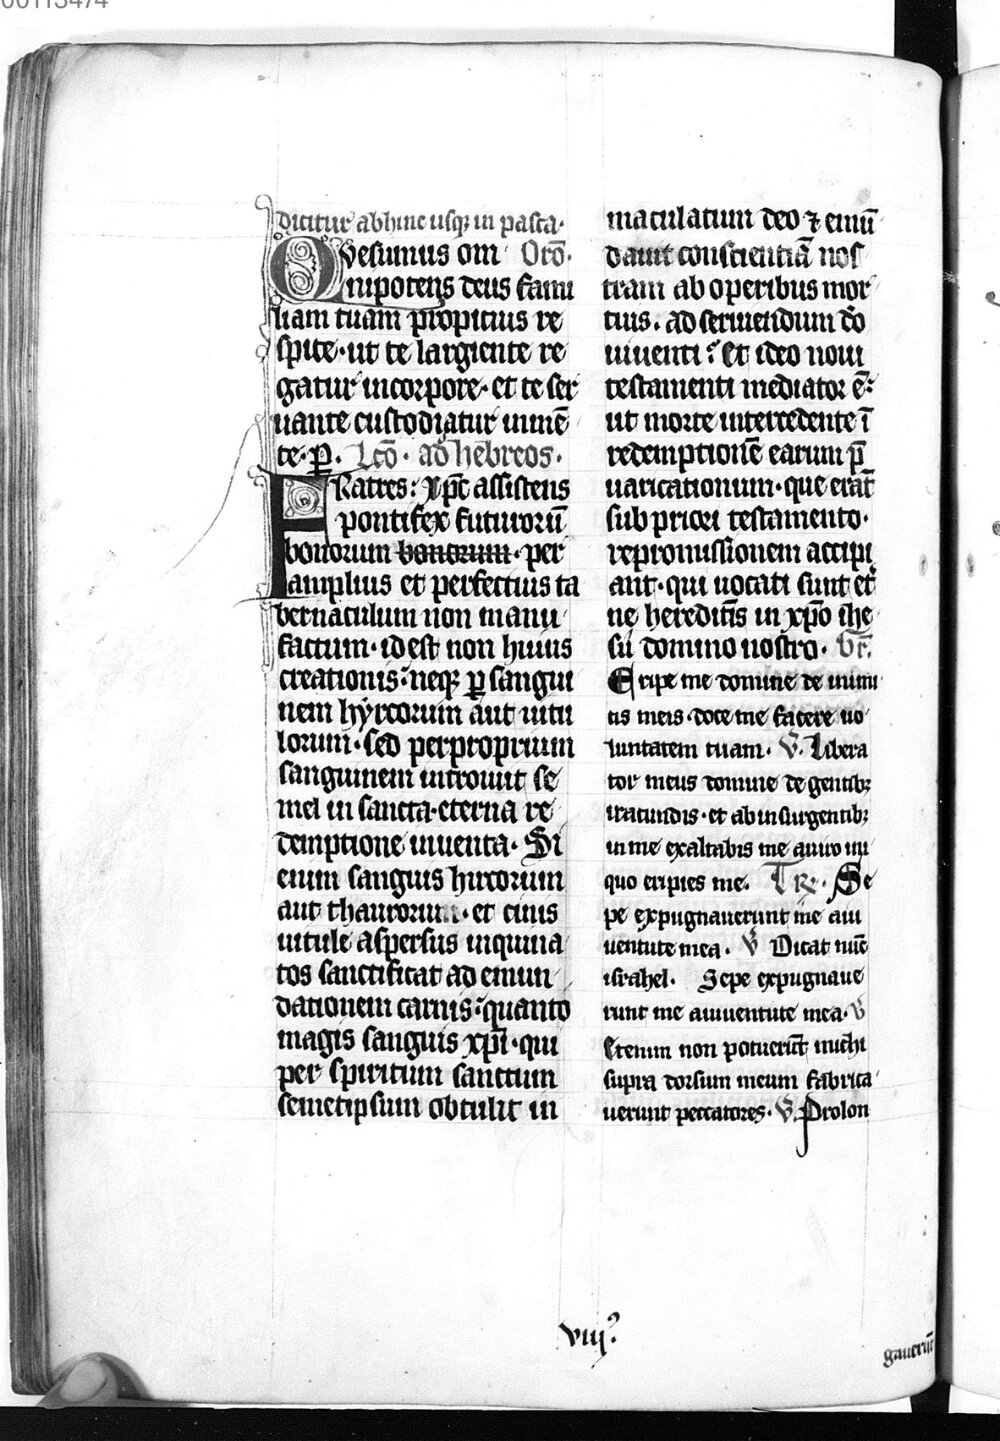 00113474
dicitur abhinc usq; in pasca.
Quesumus om Orō.
nipotens deus fami
liam tuam propicius re
spice · ut te largiente re
gatur incorpore · et te ser
uante custodiatur inmē
te · p̄. Lc̄o · ad hebreos ·
FRatres : xp̄c assistens
pontifex futurorū
bonorum bonorum · per
amplius et perfectius ta
bernaculum non manu
factum · idest non huius
creationis : neq; p̄ sangui
nem hyrcorum aut uitu
lorum · sed perproprium
sanguinem introiuit se
mel in sancta · eterna re
demptione inuenta · Si
enim sanguis hircorum
aut thaurorum · et cinis
uitule aspersus inquina
tos sanctificat ad emun
dationem carnis : quanto
magis sanguis xp̄i · qui
per spiritum sanctum
semetipsum obtulit in
maculatum deo ⁊ emū
dauit conscientiā nos
tram ab operibus mor
tuis . ad seruiendum dō
uiuenti : Et ideo noui
testamenti mediator ē :
ut morte intercedente ī
redemptionē earum p̄
uaricationum · que erāt
sub priori testamento ·
repromissionem accipi
ant · qui uocati sunt et̄
ne hereditīs in xp̄o ihe
su domino nostro · Gr̄.
Eripe me domine de inimi
cis meis · doce me facere uo
luntatem tuam · V̄. Libera
tor meus domine de gentib;
iracundis · et ab insurgentib;
in me exaltabis me auiro ini
quo eripies me. TR̄. Se
pe expugnauerunt me aiu
uentute mea . V̄ Dicat nūc
israhel. Sepe expugnaue
runt me aiuuentute mea · V̄
Etenim non potuerūt michi
supra dorsum meum fabrica
uerunt peccatores · V̄. Prolon
viijꝰ.
gauerūt